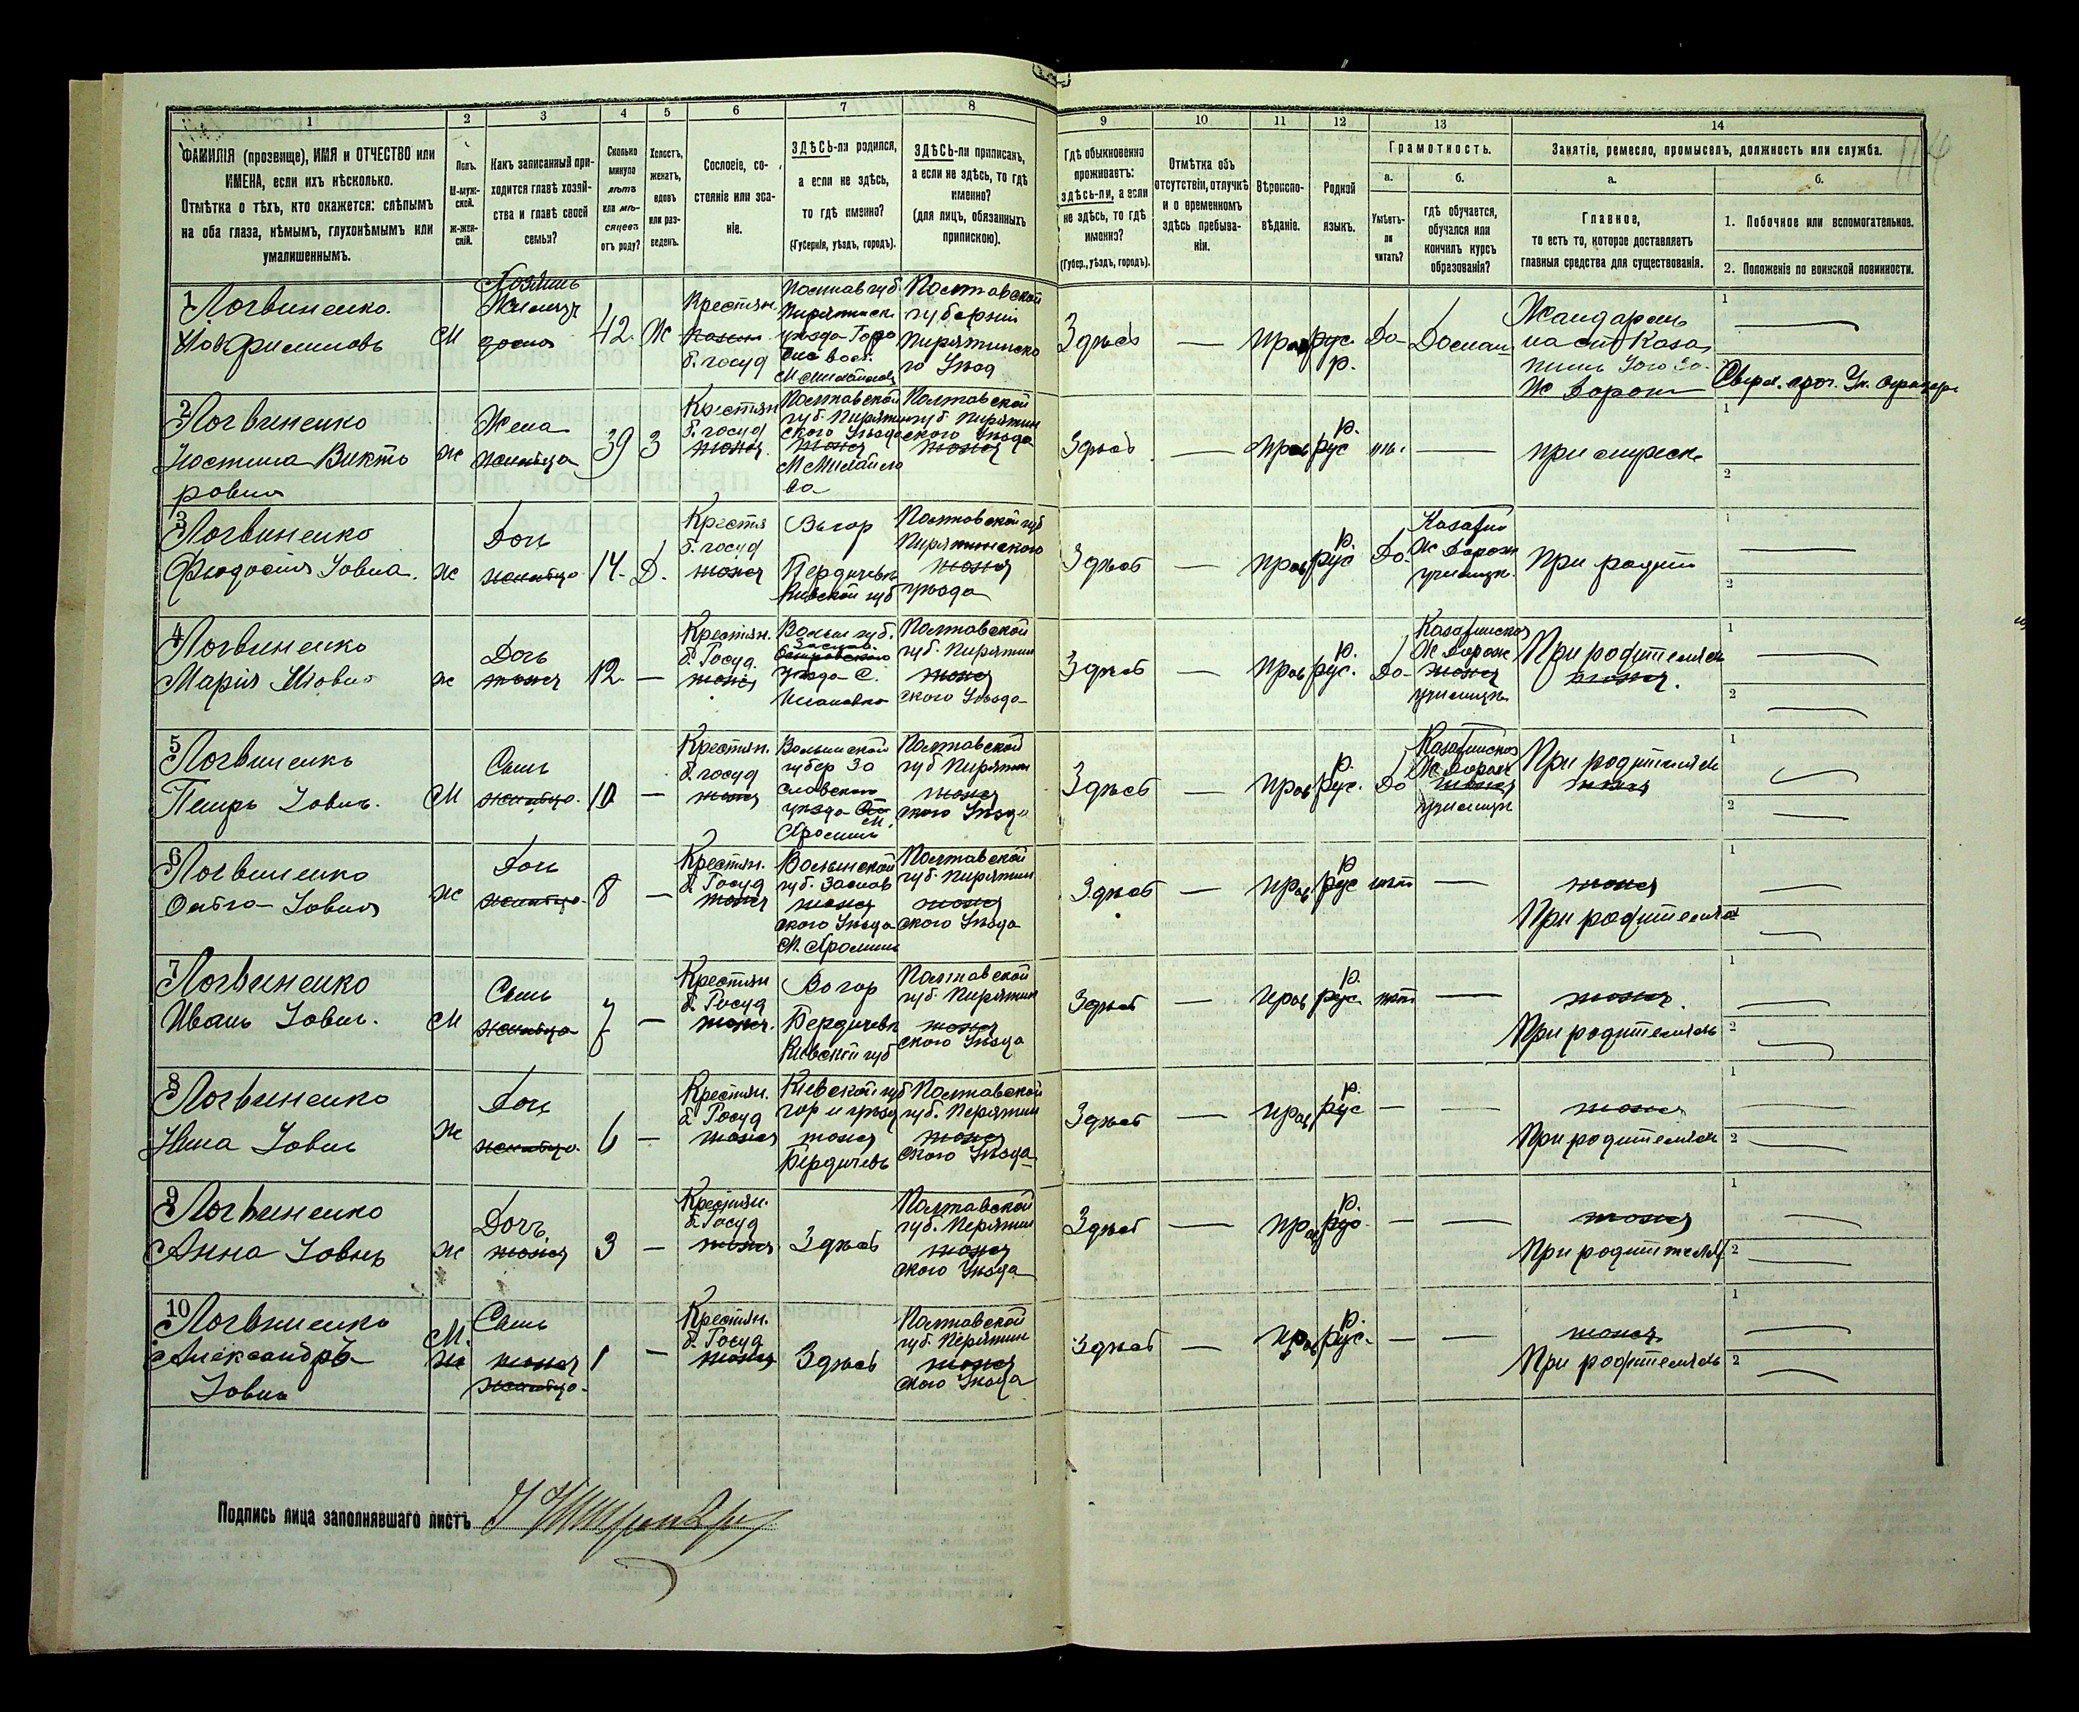 1
2
3
4
5
6
7
8
9
10
11
12
13
14
ФАМИЛІЯ (прозвище), ИМЯ и ОТЧЕСТВО или
ИМЕНА, если ихъ нѣсколько.
Отмѣтка о тѣхъ, кто окажется: слѣпымъ
на оба глаза, нѣмымъ, глухонѣмымъ или
умалишеннымъ.
Полъ.
М-муж-
ской.
Ж-жен-
скій.
Какъ записанный при-
ходится главѣ хозяй-
ства и главѣ своей
семьи?
Сколько
минуло
лѣтъ
или мѣ-
сяцевъ
отъ роду?
Холостъ,
женатъ,
вдовъ
или раз-
веденъ.
Сословіе, со-
стояніе или зва-
ніе.
ЗДѢСЬ-ли родился,
а если не здѣсь,
то гдѣ именно?
(Губернія, уѣздъ, городъ).
ЗДѢСЬ-ли приписанъ,
а если не здѣсь, то гдѣ
именно?
(для лицъ, обязанныхъ
припискою).
Гдѣ обыкновенно
проживаетъ:
здѣсь-ли, а если
не здѣсь, то гдѣ
именно?
(Губер., уѣздъ, городъ).
Отмѣтка объ
отсутствіи, отлучкѣ
и о временномъ
здѣсь пребыва-
ніи.
Вѣроиспо-
вѣданіе.
Родной
языкъ.
Грамотность.
а.
Умѣетъ-
ли
читать?
б.
гдѣ обучается,
обучался или
кончилъ курсъ
образованія?
Занятіе, ремесло, промыселъ, должность или служба.
а.
Главное,
то есть то, которое доставляетъ
главныя средства для существованія.
б.
1. Побочное или вспомогательное.
2. Положеніе по воинской повинности.
1
Логвиненко
Іовъ Филиповъ
М
Хозяинъ
42
Ж
Крестьян.
б. госуд
Полтавской
губерніи
Пирятинско
го Уѣзд
Здѣсь
прав
рус.
р.
Да
Домаш
Жандармъ
на ст. Каза
тинъ Юго За.
Ж дорог
2
Логвиненко
Викто
ровна
ж
Жена
39
З
Крестьян
б. госуд
Полтавской
губ. Пирятин
ского Уѣзда
М Михайло
ва
Полтавской
губ. Пирятин
ского Уѣзда
Здѣсь
прав
рус
р.
при мужѣ
3
Логвиненко
Феодосія Іовна.
ж
Дочь
14
Д.
Крестья
б. госуд
Въ гор
Бердичевѣ
Кіевской губ
Полтавской губ
Пирятинского
уѣзда
Здѣсь
прав
рус
р.
Да
Казатин
Ж дорож
училищѣ
При родит
4
Логвиненко
Марія Іовна
ж
Дочь
12
—
Крестьян.
б. Госуд.
Волын губ.
Заслав.
уѣзда С.
Полтавской
губ. Пирятин
ского Уѣзда
Здѣсь
—
прав
рус.
р.
Да
Казатинское
Ж дорож
училищѣ
При родителяхъ
5
Логвиненко
Петръ Іович.
М
Сынъ
10
—
Крестьян.
б. госуд
Волынской
губер За
славского
уѣзда
М.
Полтавской
губ Пирятин
ского Уѣзда
Здѣсь
—
прав
рус.
р.
Да
Казатинское
Ж дорож
училищѣ
При родителяхъ
6
Логвиненко
Ольга Іовна
ж
Дочь
8
—
Крестьян.
б. Госуд
Волынской
губ. Заслав
ского Уѣзда
Полтавской
губ. Пирятин
ского Уѣзда
Здѣсь
—
прав
рус
р
нѣт
—
При родителяхъ
7
Логвиненко
Иванъ Іович.
М
Сынъ
7
—
Крестьян
б. Госуд
Въ гор
Бердичевѣ
Кіевской губ
Полтавской
губ. Пирятин
ского Уѣзда
Здѣсь
—
прав
рус.
р.
нѣт
—
При родителяхъ
8
Логвиненко
Нина Іовна
ж
Дочь
6
—
Крестьян.
б. Госуд
Кіевской губ
гор и уѣзд
Бердичевъ
Полтавской
губ. Перятин
ского Уѣзда
Здѣсь
—
прав
рус
р.
—
—
При родителяхъ
9
Логвиненко
Анна Іовна
ж
Дочь
3
—
Крестьян.
б. Госуд
Здѣсь
Полтавской
губ. Перятин
ского Уѣзда
Здѣсь
—
прав
рус.
р.
—
—
При родителях
10
Логвиненко
Александръ
Іовичъ
М.
Сынъ
1
—
Крестьян.
б. Госуд.
Здѣсь
Полтавской
губ. Перятин
ского Уѣзда
Здѣсь
—
прав
рус.
р.
—
—
При родителяхъ
Подпись лица заполнявшаго листъ